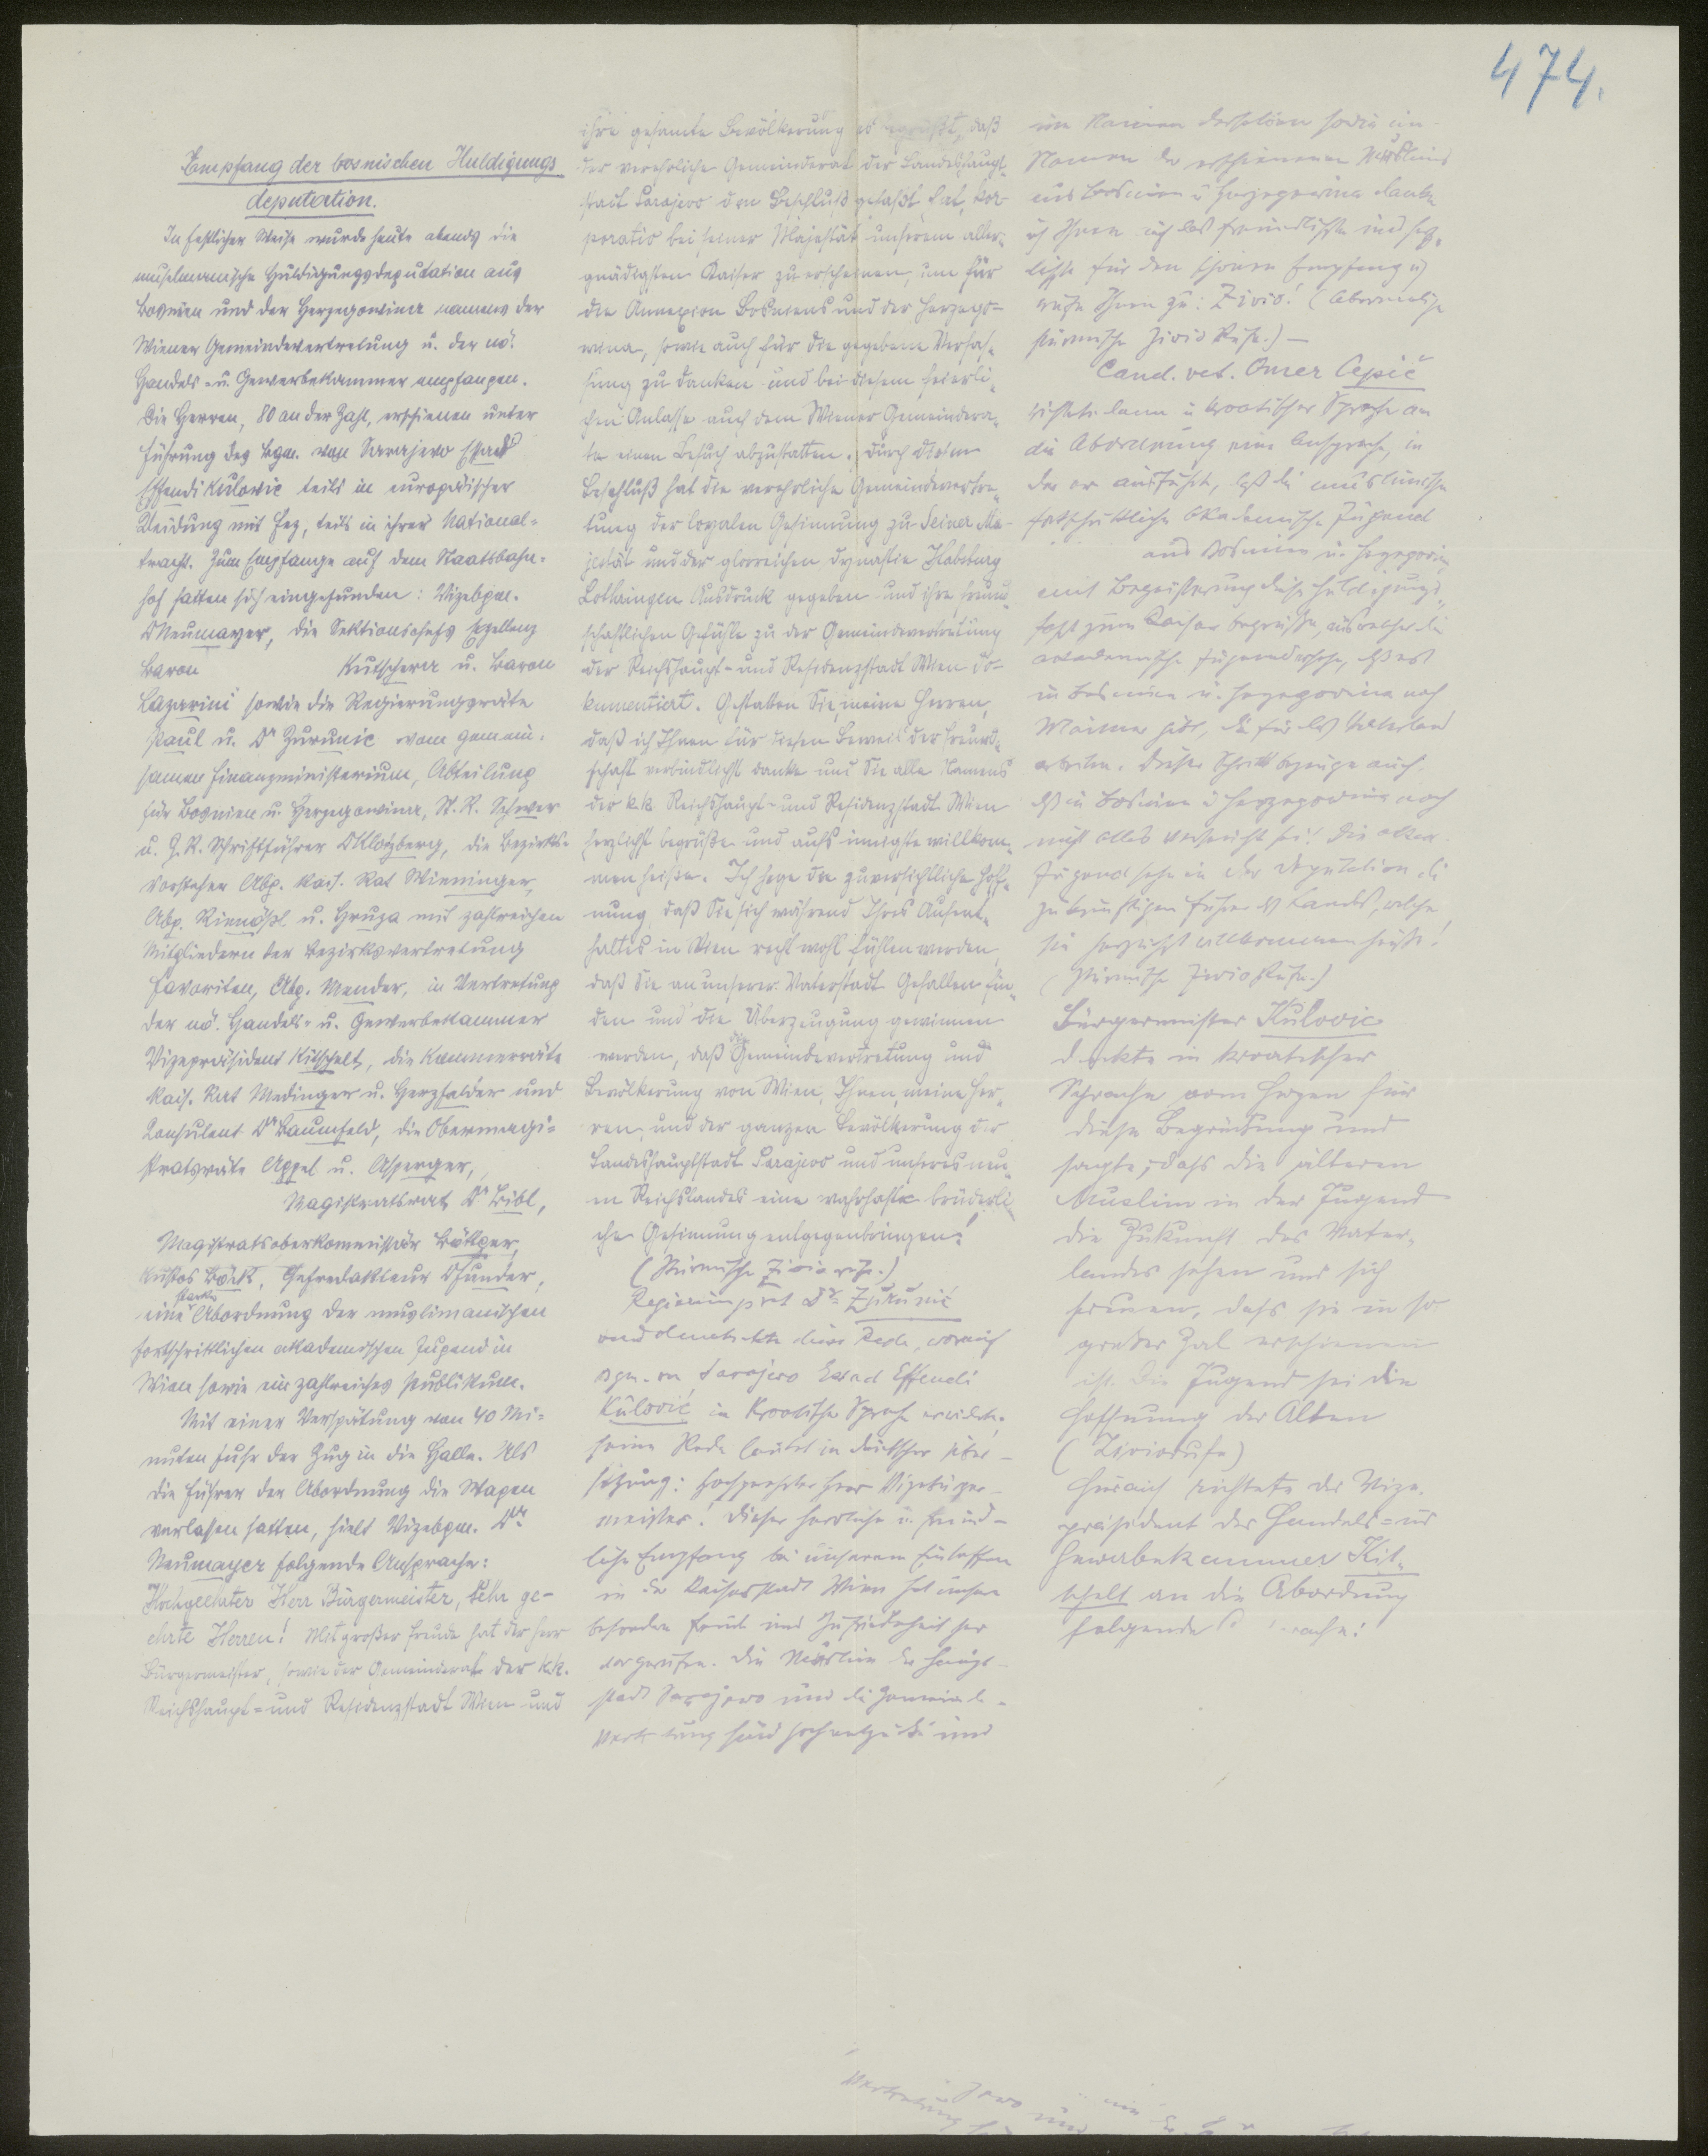 474.
Empfang der bosnischen Huldigungs
deputation.
In festlicher Weise wurde heute abends die
muselmanische Huldigungsdeputation aus
Bosnien und der Herzegowina namens der
Wiener Gemeindevertretung u. der nö.
Handels- u. Gewerbekammer empfangen.
Die Herren, 80 an der Zahl, erschienen unter
Führung des Bgm. von Sarajewo Essad
Effendi Kulovic teils in europäischer
Kleidung mit Fez, teils in ihrer National-
tracht. Zum Empfange auf dem Staatsbahn-
hof hatten sich eingefunden: Vizebgm.
Dr Neumayer, die Sektionschefs Exzellenz
Baron Kutschera u. Baron
Lazarini sowie die Regierungsräte
Paul u. Dr Zurunic vom gemein-
samen Finanzministerium, Abteilung
für Bosnien u. Herzegowina, St. R. Schwer
u. G. R. Schriftführer Dr Klotzberg, die Bezirks-
vorsteher Abg. Kais. Rat Wieninger,
Abg. Rienößl u. Hruza mit zahlreichen
Mitgliedern der Bezirksvertretung
Favoriten, Abg. Mender, in Vertretung
der nö. Handels- u. Gewerbekammer
Vizepräsident Kitschelt, die Kammerräte
Kais. Rat Medinger u. Herzfelder und
Konsulent Dr Baumfeld, die Obermagi-
stratsräte Appel u. Asperger,
Magistratsrat Dr Bibl,
Magistratsoberkommissär Böttger,
Kustos Böck, Chefredakteur Dr Funder,
eine starke Abordnung der muslimanischen
fortschrittlichen akademischen Jugend in
Wien sowie ein zahlreiches Publikum.
Mit einer Verspätung von 40 Mi-
nuten fuhr der Zug in die Halle. Als
die Führer der Abordnung die Wagen
verlassen hatten, hielt Vizebgm. Dr
Neumayer folgende Ansprache:
Hochgeehrter Herr Bürgermeister, sehr ge-
ehrte Herren! Mit großer Freude hat der Herr
Bürgermeister, sowie der Gemeinderat der k.k.
Reichshaupt- und Residenzstadt Wien und
ihre gesamte Bevölkerung es begrüßt, daß
der verehrliche Gemeinderat der Landeshaupt-
stadt Sarajevo den Beschluß gefaßt hat, kor-
porativ bei seiner Majestät unserem aller-
gnädigsten Kaiser zu erscheinen, um für
die Annexion Bosniens und der Herzego-
wina, sowie auch für die gegebene Verfas-
sung zu danken und bei diesem feierli-
chen Anlasse auch dem Wiener Gemeindera-
te einen Besuch abzustatten. Durch diesen
Beschluß hat die verehrliche Gemeindevertre-
tung der loyalen Gesinnung zu Seiner Ma-
jestät und der glorreichen Dynastie Habsburg
Lothringen Ausdruck gegeben und ihre freund-
schaftlichen Gefühle zu der Gemeindevertretung
der Reichshaupt- und Residenzstadt Wien do-
kumentiert. Gestatten Sie, meine Herren,
daß ich Ihnen für diesen Beweis der Freund-
schaft verbindlichst danke und Sie alle Namens
der k.k. Reichshaupt- und Residenzstadt Wien
herzlichst begrüße und aufs innigste willkom-
men heiße. Ich hege die zuversichtliche Hoff-
nung, daß Sie sich während Ihres Aufent-
haltes in Wien recht wohl fühlen werden,
daß Sie an unserer Vaterstadt Gefallen fin-
den und die Überzeugung gewinnen
werden, daß die Gemeindevertretung und
Bevölkerung von Wien, Ihnen, meine Her-
ren, und der ganzen Bevölkerung der
Landeshauptstadt Sarajevo und unseres neu-
en Reichslandes eine wahrhaft brüderli-
che Gesinnung entgegenbringen!
(Stürmische Zivio rufe.)
Regierungsrat Dr Zurunić
verdolmetschte diese Rede, worauf
Bgm. von Sarajevo Essad Effendi
Kulović in kroatischer Sprache erwiderte;
seine Rede lautet in deutscher Über-
setzung: Hochgeehrter Herr Vizebürger-
meister! Dieser herrliche u. freund-
liche Empfang bei unserem Eintreffen
in der Kaiserstadt Wien hat unsere
besondere Freude und Zufriedenheit her-
vorgerufen. Die Muslim der Haupt-
stadt Sarajevo und die Gemeinde-
vertretung sind hochentzückt und
im Namen derselben sowie im
Namen der erschienenen Muslims
aus Bosnien u. Herzegowina danke
ich Ihnen auf das freundlichste und herz-
lichste für den schönen Empfang u.
rufe Ihnen zu: Zivio! (Abermalige
stürmische Zivio Rufe.) —
Cand. vet. Omer Cepić
richtete dann in kroatischer Sprache an
die Abordnung eine Ansprache, in
der er ausführte, daß die muslimische
fortschrittliche akademische Jugend
aus Bosnien u. Herzegovina
mit Begeisterung diese Huldigungs-
fahrt zum Kaiser begrüße, aus welcher die
akademische Jugend sehe, daß es
in Bosnien u. Herzegovina noch
Männer gibt, die für das Vaterland
arbeiten. Dieser Schritt bezeuge auch,
daß in Bosnien u Herzegovina noch
nicht alles verseucht sei! Die akad.
Jugend sehe in der Deputation die
zukünftigen Führer des Landes, welche
sie herzlichst willkommen heiße!
(Stürmische Zivio Rufe.)
Bürgermeister Kulovic
dankte in kroatischer
Sprache vom Herzen für
diese Begrüßung und
sagte, dass die älteren
Muslim in der Jugend
die Zukunft des Vater-
landes sehen und sich
freuen, dass sie in so
großer Zal erschienen
ist. Die Jugend sei die
Hoffnung der Alten
(Ziviorufe)
Hierauf richtete der Vize-
präsident der Handels- und
Gewerbekammer Kit-
schelt an die Abordnung
folgende
Vertretung